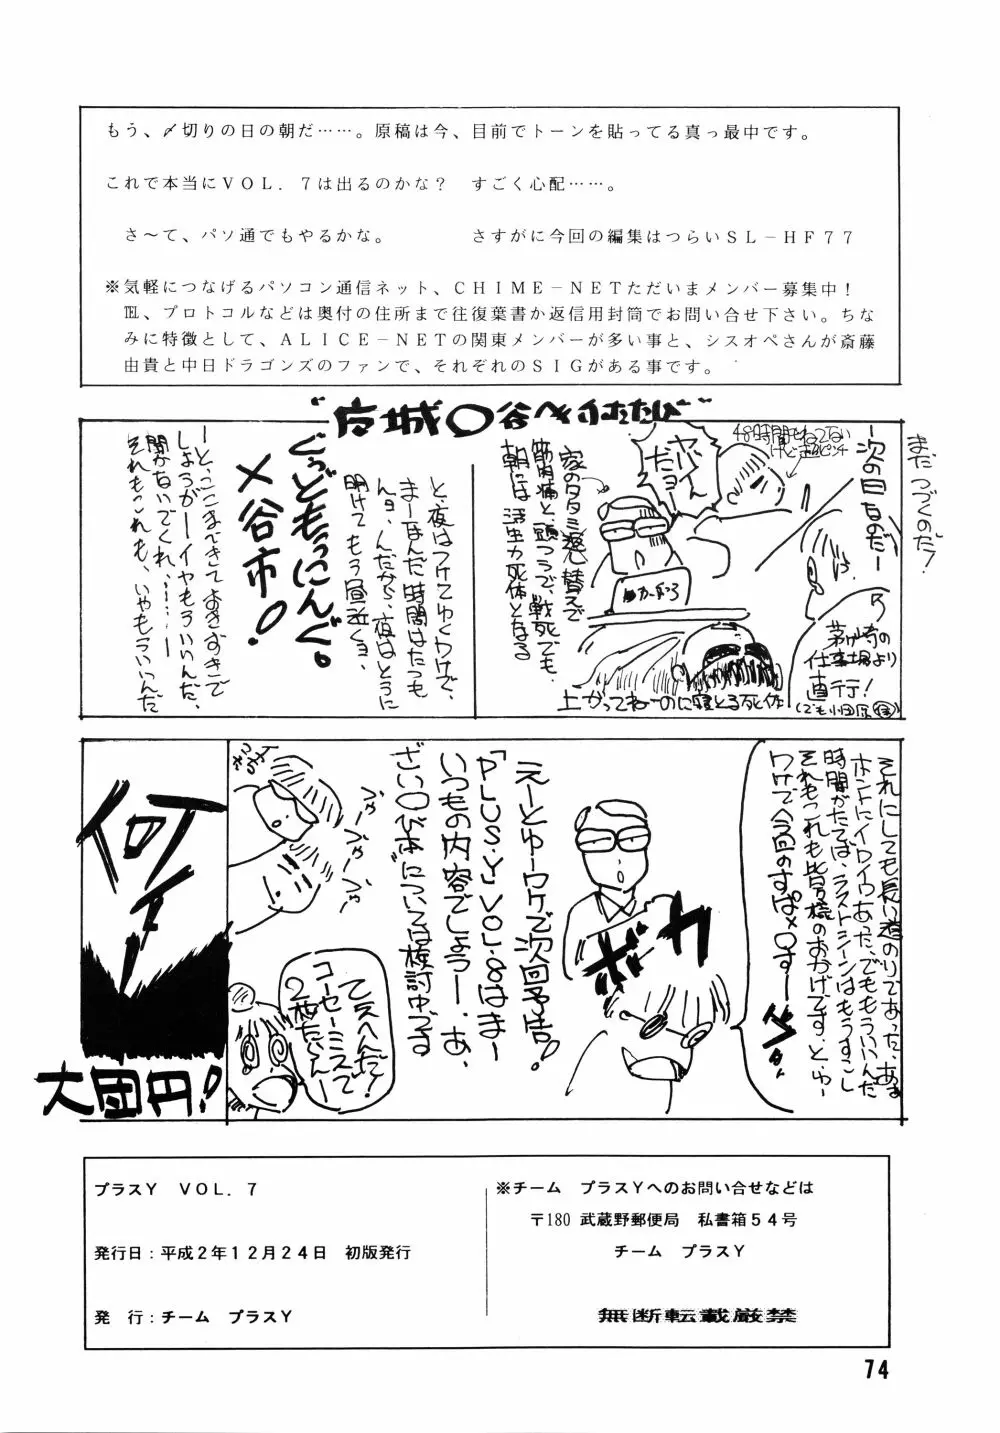 もう、〆切りの日の朝だ……。原稿は今、目前でトーンを貼ってる真っ最中です。
これで本当にＶＯＬ．７は出るのかな？　すごく心配……。
さ～て、パソ通でもやるかな。　さすがに今回の編集はつらいＳＬ－ＨＦ７７
※気軽につなげるパソコン通信ネット、ＣＨＩＭＥ－ＮＥＴただいまメンバー募集中！
℡、プロトコルなどは奥付の住所まで往復葉書か返信用封筒でお問い合せ下さい。ちな
みに特徴として、ＡＬＩＣＥ－ＮＥＴの関東メンバーが多い事と、シスオペさんが斎藤
由貴と中日ドラゴンズのファンで、それぞれのＳＩＧがある事です。
まだつづくのだ！
―次の日なのだ―
48時間もねてない
茅ヶ崎の
仕事場より
直行！
家のタタミ返し替えで
筋肉痛と、頭つうで、戦死でも、
朝には活生力死体となる
上がってねーのに寝とる死体
と、夜はつけてゆくワケで、
まーほんだ時間はたつも
んョ、んだから、夜はとうに
明けてもう昼近くョ、
ぐっどもっにんぐ。
〆谷市！
―と、ここまできておきすきで
しょうがーイヤもういいんだ、
聞かないでくれ………―
それもこれも、いやもういいんだ
それにしても長い道のりであった、ある
ホントにイロイロあった、でももういいんだ
時間がたてば、ラストシーンはもうすこし
それもこれも皆様のおかげです、とゆー
ワケで今回のすぱ〆〇すー
ボカ
えーとゆーワケで次回予告！
「PLUS・Y」VOL・8はまー
いつもの内容でしょうー、あ、
ざい〇び本については検討中づる
コーセーミスで
2枚たいんー
何！
大団円！
プラスＹ　ＶＯＬ．７
発行日：平成２年１２月２４日　初版発行
発　行：チーム　プラスＹ
※チーム　プラスＹへのお問い合せなどは
〒180 武蔵野郵便局　私書箱５４号
チーム　プラスＹ
無断転載厳禁
74